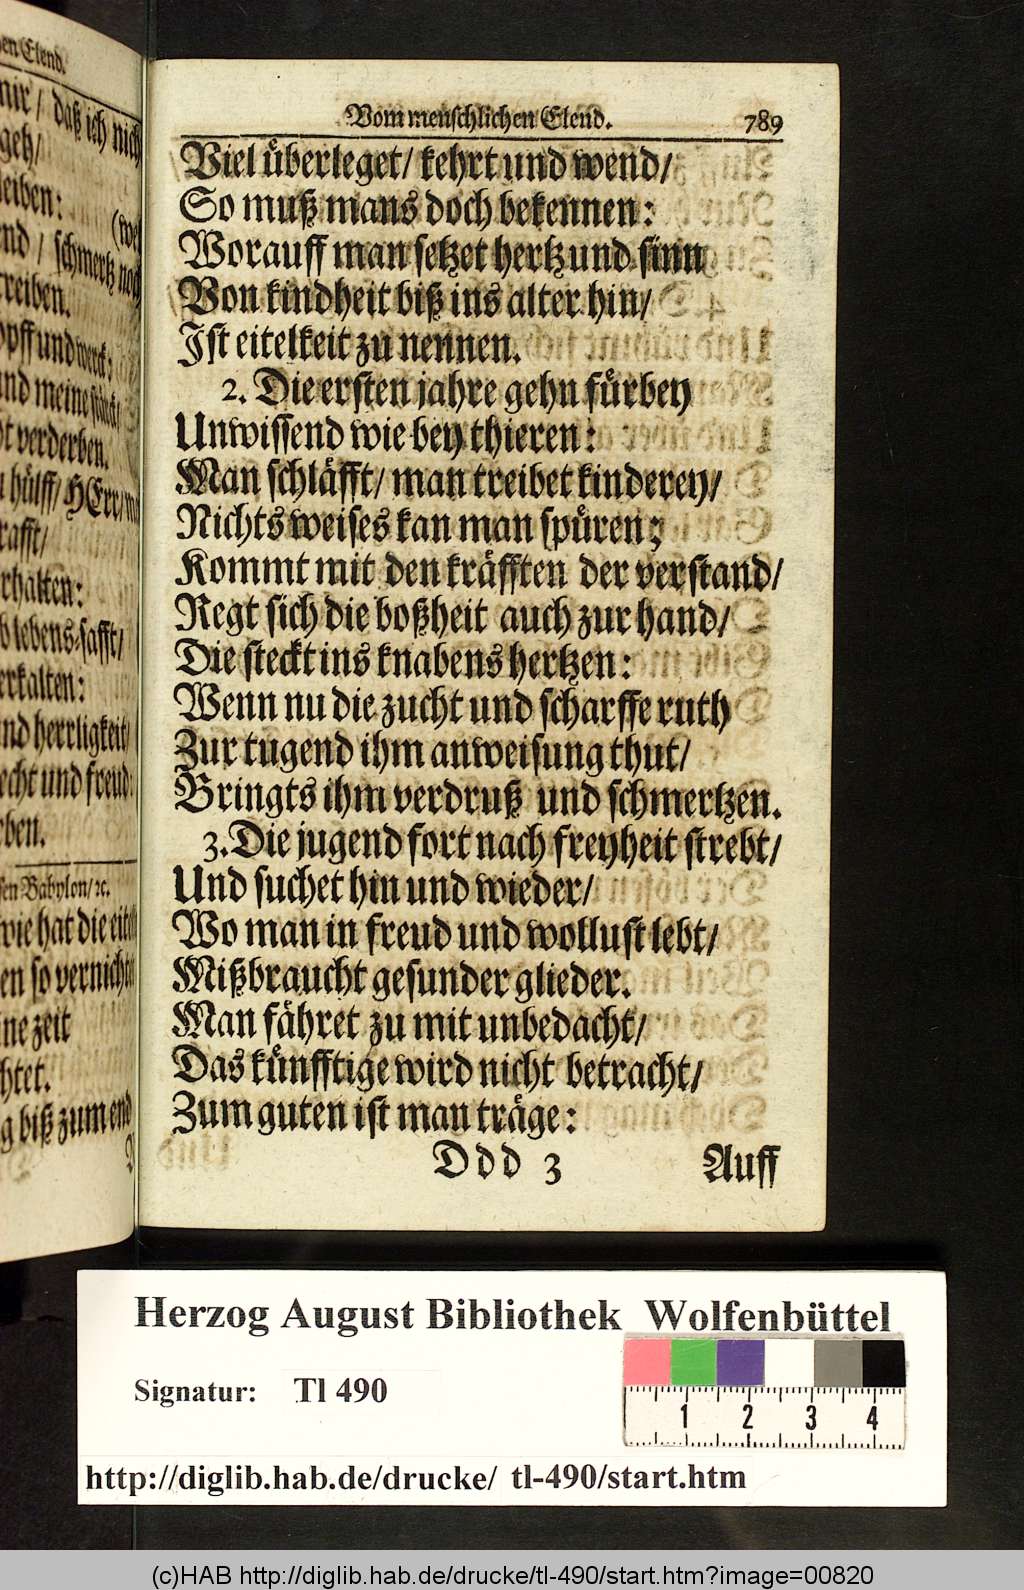 en Elend.
mir / daß ich nich
geh/
leiben:
(we
end / schmertz noch
treiben.
opff und werck:
und meine
ot verderben.
hülff/ HErr/
rafft/
erhalten:
lebens-safft/
erkalten:
nd herrligkeit/
echt und freud:
ben.
sen Babylon/ ꝛc.
wie hat die
en so
ne zeit
htet.
g biß zum end
Vom menschlichen Elend. 789
Viel überleget/ kehrt und wend/
So muß mans doch bekennen:
Worauff man setzet hertz und sinn
Von kindheit biß ins alter hin/
Ist eitelkeit zu nennen.
2. Die ersten jahre gehn fürbey
Unwissend wie bey thieren:
Man schläfft/ man treibet kinderey/
Nichts weises kan man spüren;
Kommt mit den kräfften der verstand/
Regt sich die boßheit auch zur hand/
Die steckt ins knabens hertzen:
Wenn nu die zucht und scharffe ruth
Zur tugend ihm anweisung thut/
Bringts ihm verdruß und schmertzen.
3. Die jugend fort nach freyheit strebt/
Und suchet hin und wieder/
Wo man in freud und wollust lebt/
Mißbraucht gesunder glieder.
Man fähret zu mit unbedacht/
Das künfftige wird nicht betracht/
Zum guten ist man träge:
Ddd 3 Auff
Herzog August Bibliothek Wolfenbüttel
Signatur: Tl 490
1 2 3 4
http://diglib.hab.de/drucke/ tl-490/start.htm
(c)HAB http://diglib.hab.de/drucke/tl-490/start.htm?image=00820